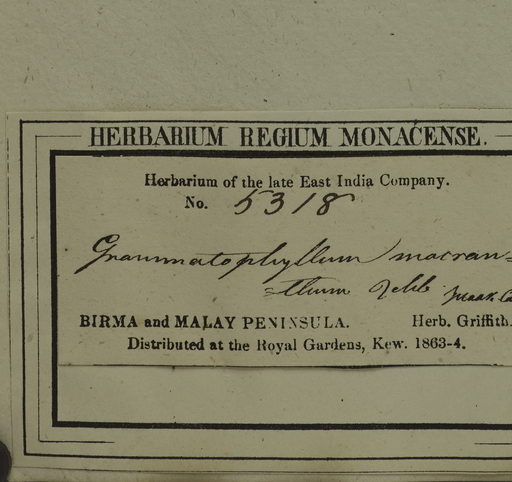 HERBARIUM REGIUM MONACENSE.
Herbarium of the late East India Company.
No. 5318
Grammatophyllum macran=
=thum Rchb.
BIRMA and MALAY PENINSULA. Herb. Griffith.
Distributed at the Royal Gardens, Kew. 1863-4.